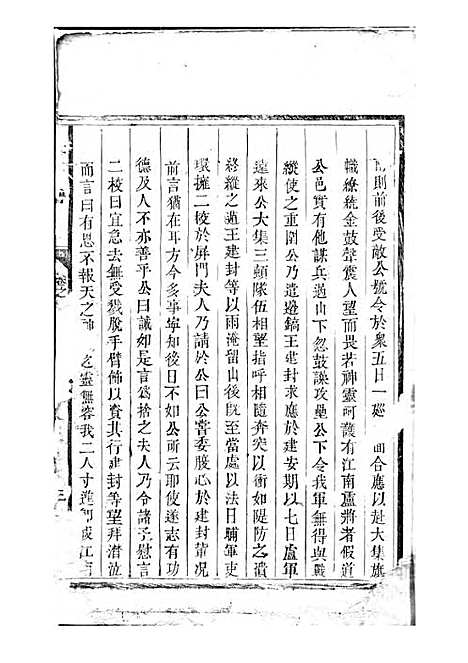 則前後受敵公號令於衆五日一 面合應以赴大集旗
幟繚統金鼓聲震人望而畏若神靈呵護有江南盧將者假道
公邑實有他謀兵過山下忽鼓譟攻壘公下令我軍無得與戰
縱使之重圍公乃遣邊鎬王建封求應於建安期以七日盧軍
遠來公大集三顛隊伍相望指呼相隨奔突以衝如隄防之潰
終縱之遁王建封等以雨淹留山後既至當處以法日驕軍吏
環擁二校於屏門夫人乃請於公曰公嘗委腹心於建封輩况
前言猶在耳方今多事寧知後日不如公所云耶使遂志有功
德及人不亦善乎公曰誠如是言爲捨之夫人乃令諸子慰言
二校曰宜急去無受戮脫手臂飾以資其行建封等望拜潸泣
而言曰有恩不報天之 之靈無容我二人寸進 江
三